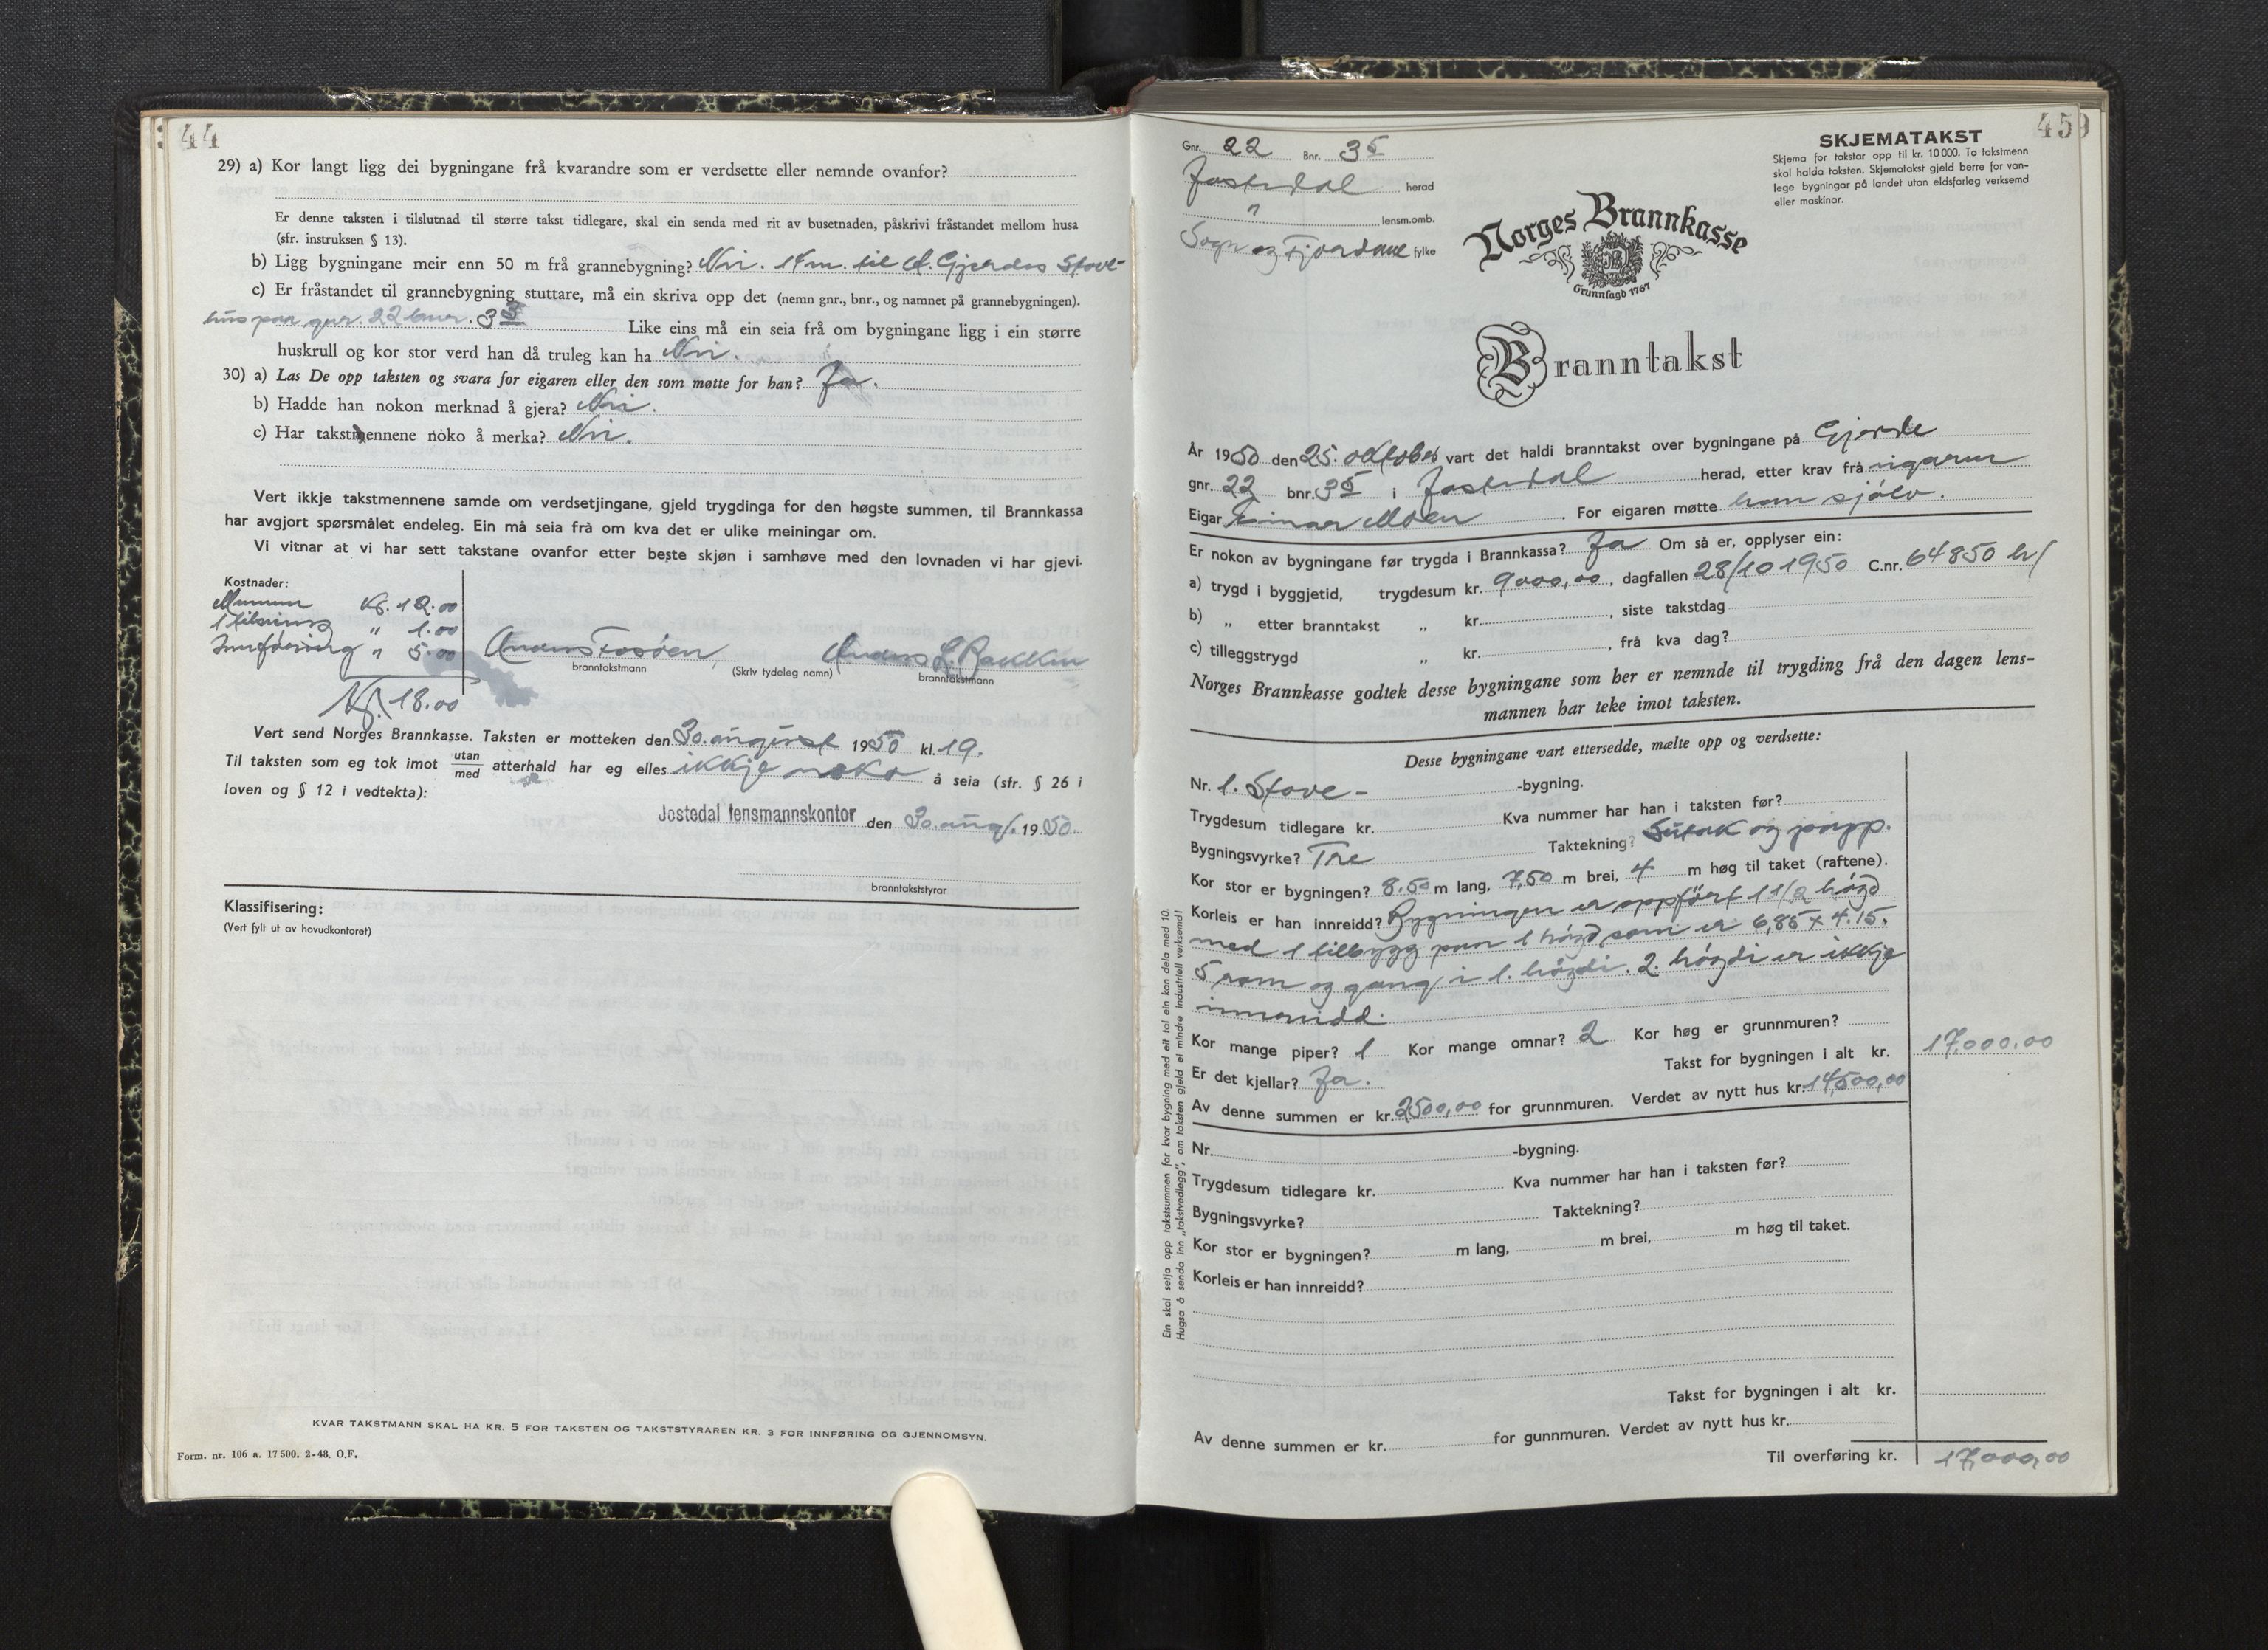 44
29) a) Kor langt ligg dei bygningane frå kvarandre som er verdsette eller nemnde ovanfor?
Er denne taksten i tilslutnad til større takst tidlegare, skal ein senda med rit av busetnaden, påskrivi fråstandet mellom husa
(sfr. instruksen § 13).
b) Ligg bygningane meir enn 50 m frå grannebygning? Nei. 17 m. til A. Gjerdes Stove-
c) Er fråstandet til grannebygning stuttare, må ein skriva opp det (nemn gnr., bnr., og namnet på grannebygningen).
hus paa gnr. 22 bnr. 33 Like eins må ein seia frå om bygningane ligg i ein større
huskrull og kor stor verd han då truleg kan ha Nei.
30) a) Las De opp taksten og svara for eigaren eller den som møtte for han? Ja.
b) Hadde han nokon merknad å gjera? Nei.
c) Har takstmennene noko å merka? Nei.
Vert ikkje takstmennene samde om verdsetjingane, gjeld trygdinga for den høgste summen, til Brannkassa
har avgjort spørsmålet endeleg. Ein må seia frå om kva det er ulike meiningar om.
Vi vitnar at vi har sett takstane ovanfor etter beste skjøn i samhøve med den lovnaden vi har gjevi.
Kostnader:
Mennene Kr. 12.00
1 tilsending „ 1.00
Innføring „ 5.00
Kr. 18.00
Anders Fosøen, Anders L. Bakken
branntakstmann (Skriv tydeleg namn) branntakstmann
Vert send Norges Brannkasse. Taksten er motteken den 30. august 1950 kl. 19.
Til taksten som eg tok imot utan/med atterhald har eg elles ikkje noko å seia (sfr. § 26 i
loven og § 12 i vedtekta):
Jostedal lensmannskontor den 30. aug. 1950.
branntakststyrar
Klassifisering:
(Vert fylt ut av hovudkontoret)
KVAR TAKSTMANN SKAL HA KR. 5 FOR TAKSTEN OG TAKSTSTYRAREN KR. 3 FOR INNFØRING OG GJENNOMSYN.
Form. nr. 106 a. 17 500. 2-48. O.F.
459
Gnr. 22 Bnr. 35
Jostedal herad
" lensm.omb.
Sogn og Fjordane fylke
SKJEMATAKST
Skjema for takstar opp til kr. 10 000. To takstmenn
skal halda taksten. Skjematakst gjeld berre for van-
lege bygningar på landet utan eldsfarleg verksemd
eller maskinar.
Norges Brannkasse
Grunnlagd 1767
Branntakst
År 1950 den 25. oktober vart det haldi branntakst over bygningane på Gjerde
gnr. 22 bnr. 35 i Jostedal herad, etter krav frå eigaren
Eigar Einar Moen. For eigaren møtte han sjølv.
Er nokon av bygningane før trygda i Brannkassa? Ja Om så er, opplyser ein:
a) trygd i byggjetid, trygdesum kr. 9000,00, dagfallen 28/10 1950 C.nr. 64850 b/
b) „ etter branntakst „ kr. , siste takstdag
c) tilleggstrygd „ kr. , frå kva dag?
Norges Brannkasse godtek desse bygningane som her er nemnde til trygding frå den dagen lens-
mannen har teke imot taksten.
Desse bygningane vart ettersedde, mælte opp og verdsette:
Nr. 1. Stove- -bygning.
Trygdesum tidlegare kr. Kva nummer har han i taksten før?
Bygningsvyrke? Tre Taktekning? Sutak og papp.
Kor stor er bygningen? 8.50 m lang, 7,50 m brei, 4 m høg til taket (raftene).
Korleis er han innreidd? Bygningen er oppført 1 1/2 høgd
med 1 tilbygg paa 1 høgd som er 6,85 x 4.15.
5 rom og gang i 1. høgdi. 2. høgdi er ikkje
innreidd.
Kor mange piper? 1 Kor mange omnar? 2 Kor høg er grunnmuren?
Er det kjellar? Ja. Takst for bygningen i alt kr. 17.000,00
Av denne summen er kr. 2500,00 for grunnmuren. Verdet av nytt hus kr. 14,500,00
Nr. -bygning.
Trygdesum tidlegare kr. Kva nummer har han i taksten før?
Bygningsvyrke? Taktekning?
Kor stor er bygningen? m lang, m brei, m høg til taket.
Korleis er han innreidd?
Takst for bygningen i alt kr.
Av denne summen er kr. for gunnmuren. Verdet av nytt hus kr.
Til overføring kr. 17,000,00
Ein skal setja opp takstsummen for kvar bygning med eit tal ein kan dela med 10.
Hugsa å senda inn „takstvedlegg“, om taksten gjeld ei mindre industriell verksemd!